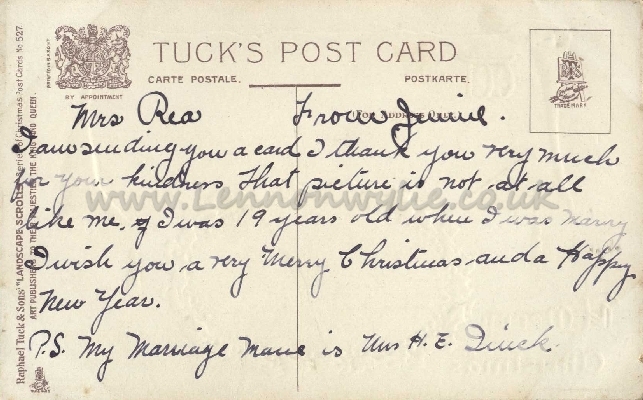 TUCK'S POST CARD
CARTE POSTALE.
POSTKARTE.
BY APPOINTMENT
TRADE MARK
(FOR ADDRESS ONLY)
Mrs Rea From Jinnie.
I am sending you a card I thank you very much
for your kindness that picture is not at all
like me, I was 19 years old when I was
I wish you a very Merry Christmas and a Happy
New Year.
P.S. My Marriage Name is Mrs H. E. Quick
www.Lennonwylie.co.uk
Raphael Tuck & Sons' "LANDSCAPE SCROLL" Series of Christmas Post Cards No 527.
ART PUBLISHERS TO THEIR MAJESTIES THE KING AND QUEEN.